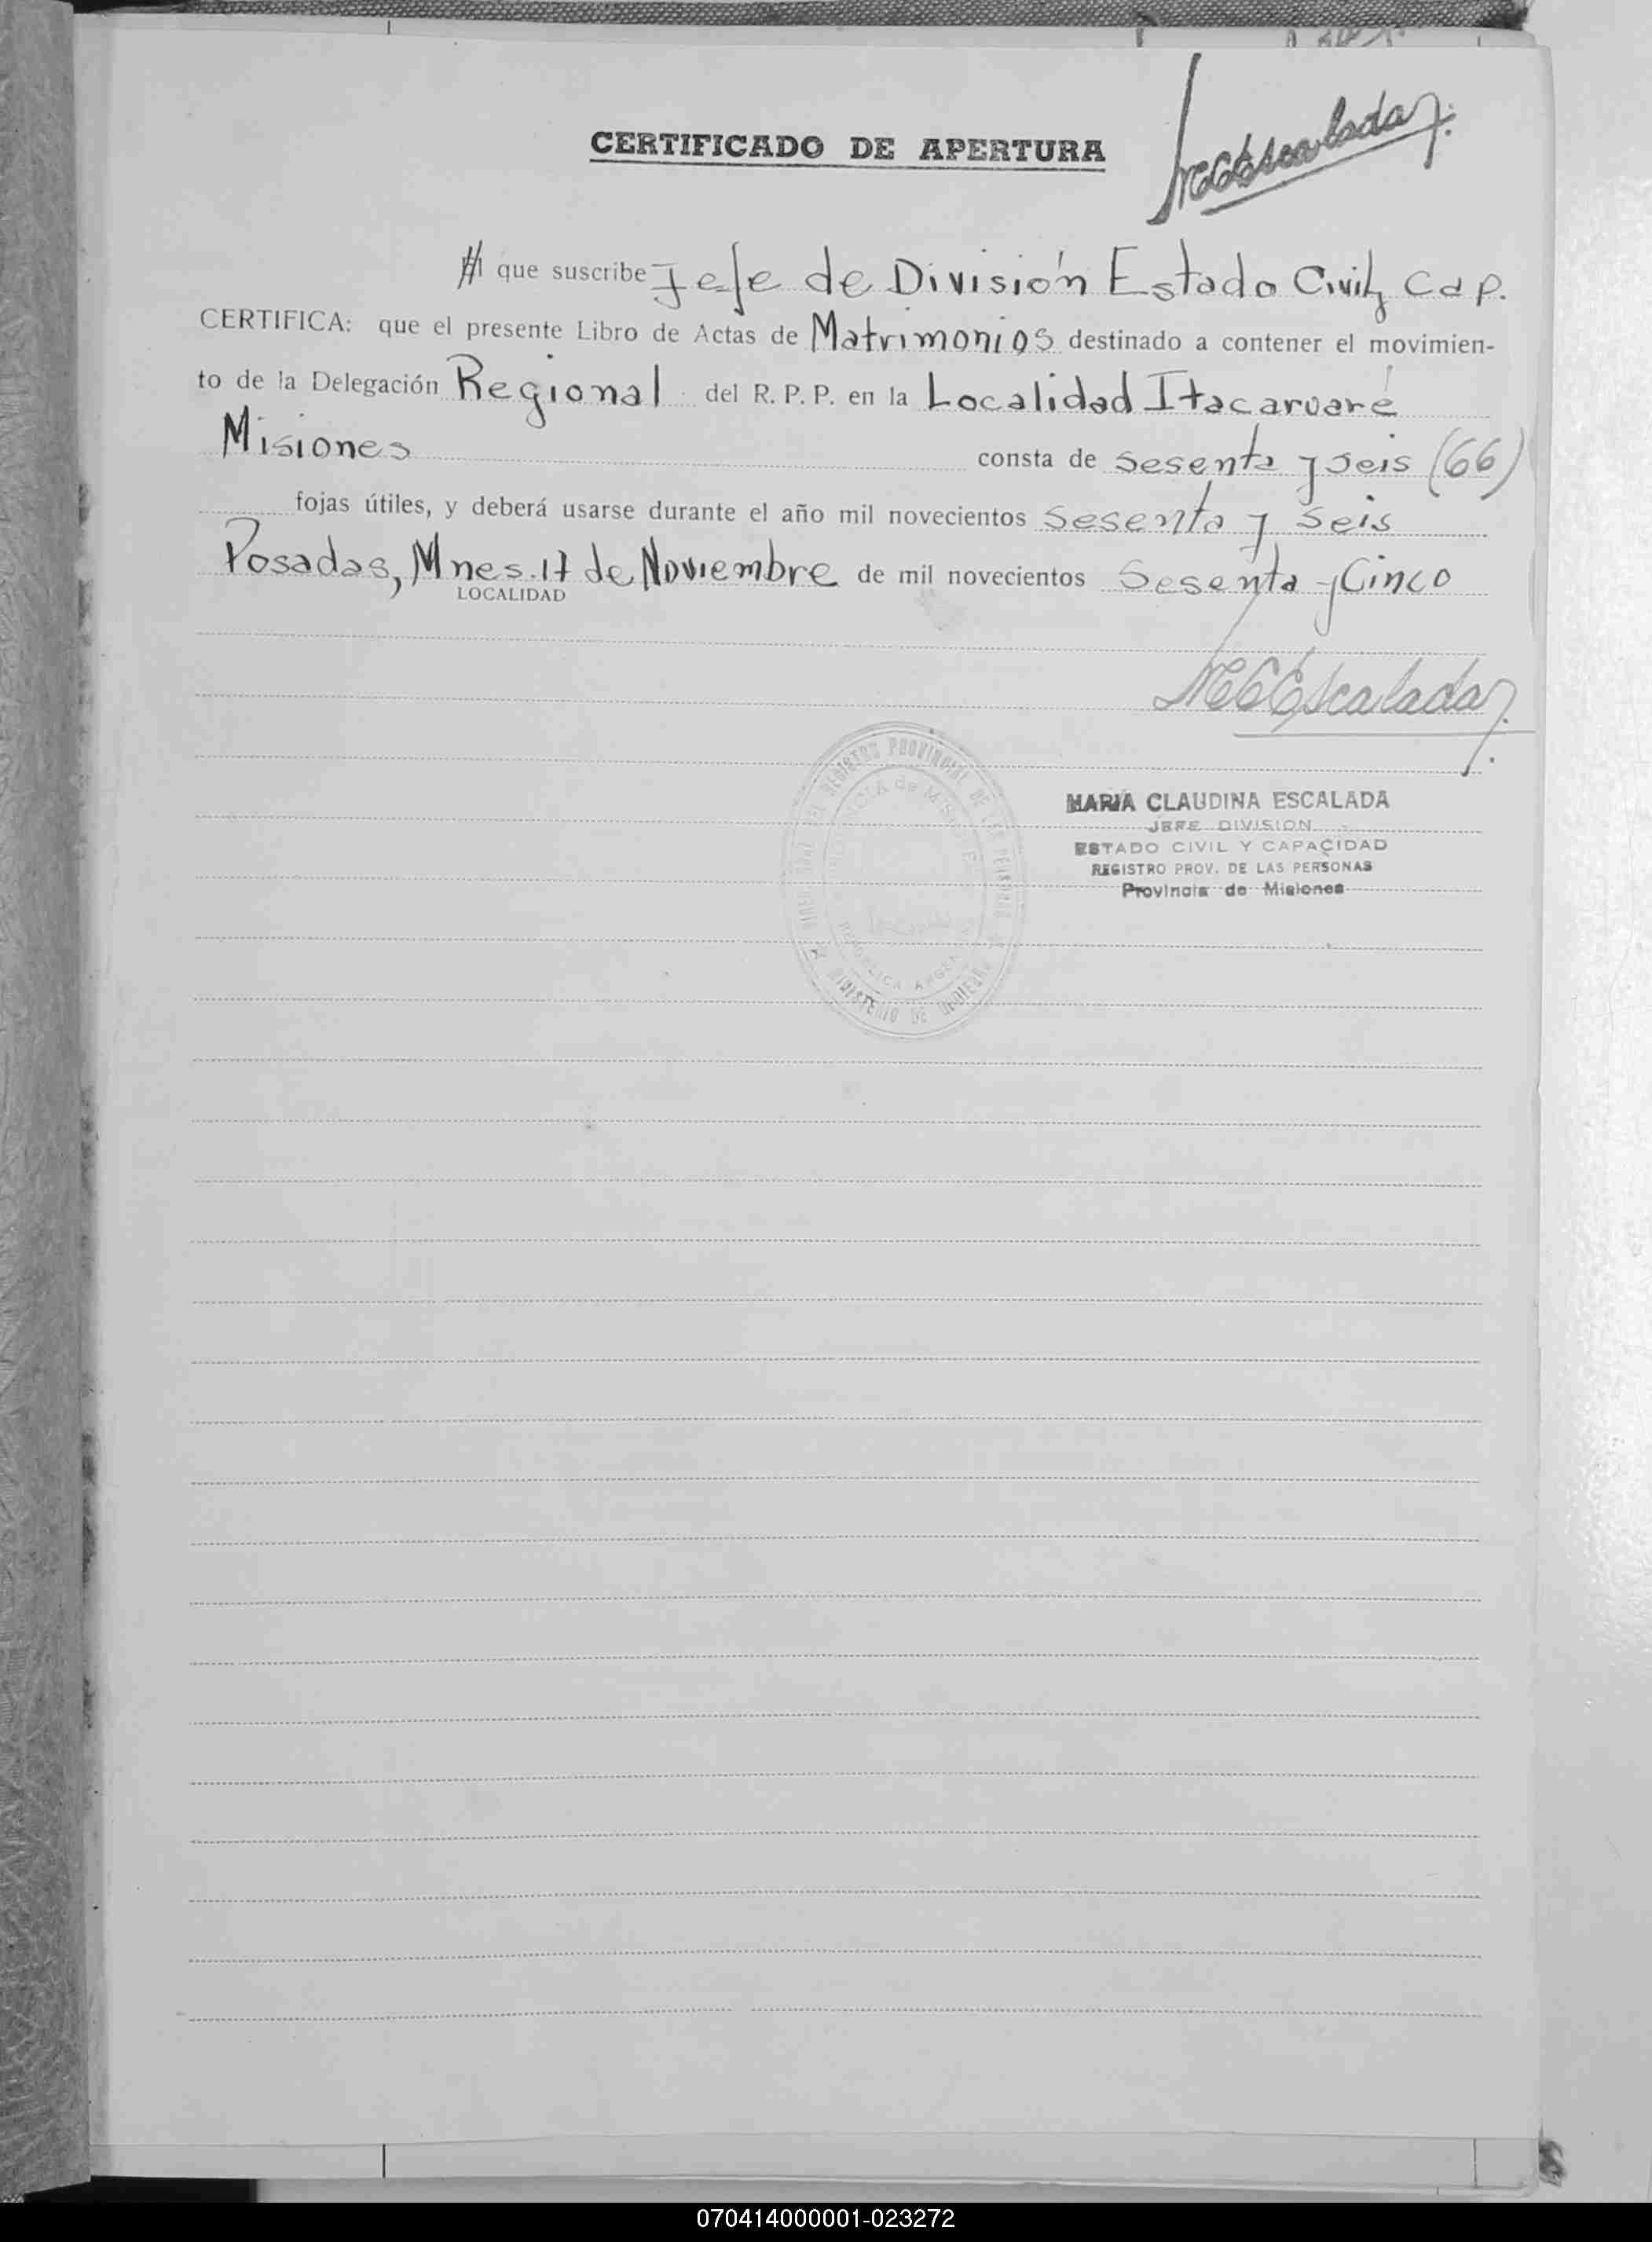 CERTIFICADO DE APERTURA
MCEscalada
El que suscribe Jefe de División Estado Civil y Cap.
CERTIFICA: que el presente Libro de Actas de Matrimonios destinado a contener el movimien-
to de la Delegación Regional del R. P. P. en la Localidad Itacaruaré
Misiones consta de sesenta y seis (66)
fojas útiles, y deberá usarse durante el año mil novecientos sesenta y seis
Posadas, Mnes. 17 de Noviembre de mil novecientos Sesenta y Cinco
LOCALIDAD
MCEscalada
MARIA CLAUDINA ESCALADA
JEFE DIVISION
ESTADO CIVIL Y CAPACIDAD
REGISTRO PROV. DE LAS PERSONAS
Provincia de Misiones
REGISTRO PROVINCIAL DE LAS PERSONAS
PROVINCIA de MISIONES
REPUBLICA ARGENTINA
MINISTERIO DE GOBIERNO
070414000001-023272